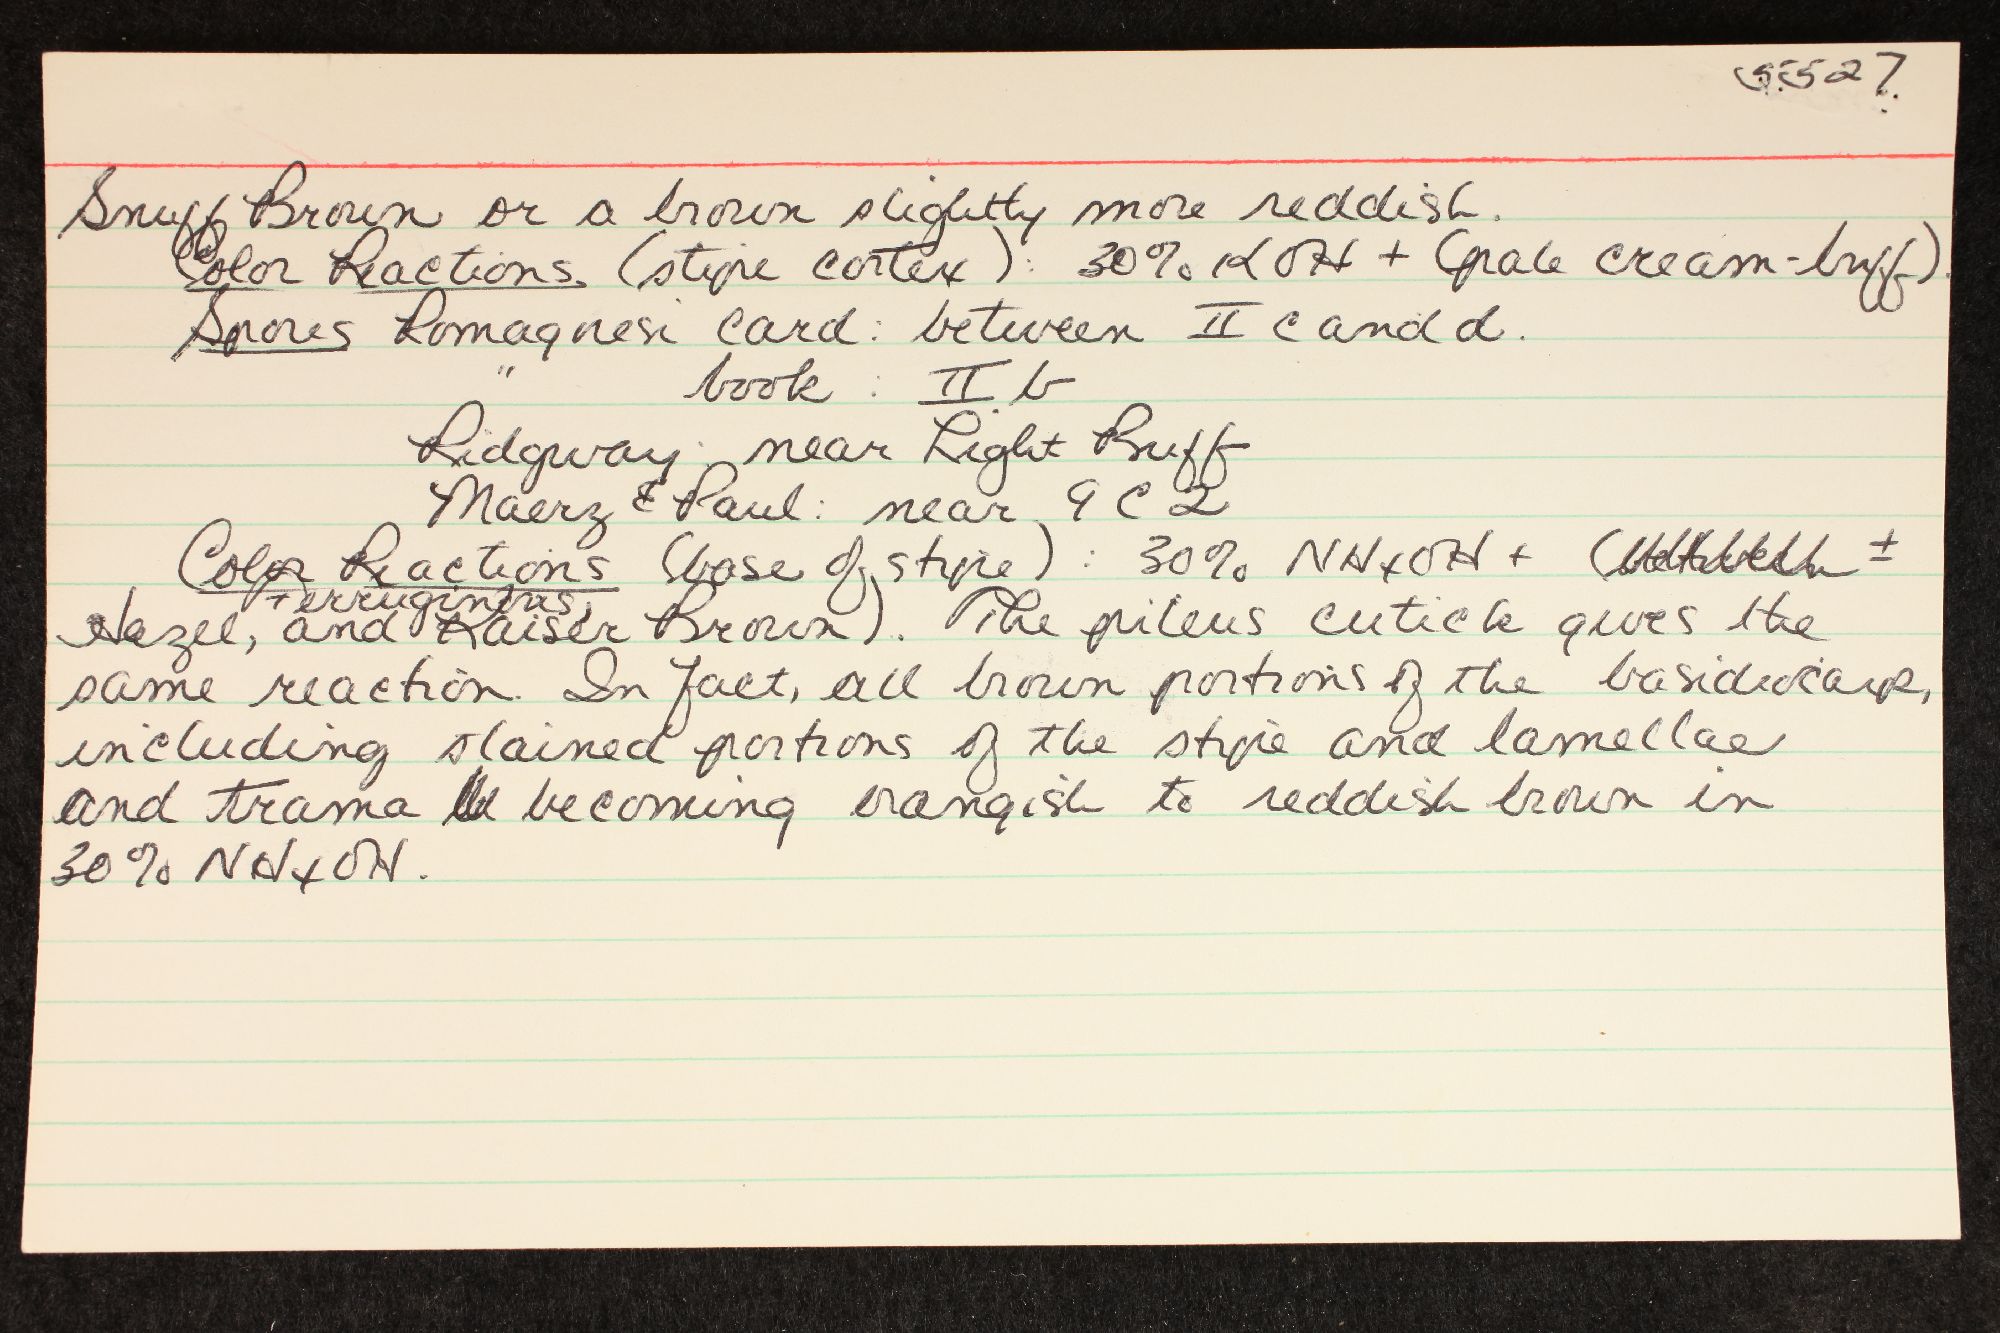 5527
Snuff Brown or a brown slightly more reddish.
Color Reactions (stipe cortex): 30% KOH + (pale cream-buff).
Spores Romagnesi card: between II c and d.
" book : II b
Ridgway: near Light Buff
Maerz & Paul: near 9 C 2
Color Reactions (base of stipe): 30% NH4OH + ( ±
ferruginous,
Hazel, and Kaiser Brown). The pileus cuticle gives the
same reaction. In fact, all brown portions of the basidiocarp,
including stained portions of the stipe and lamellae
and trama becoming orangish to reddish brown in
30% NH4OH.